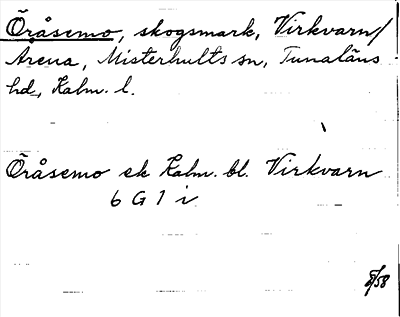 Öråsemo, skogsmark, Virkvarn/
Arena, Misterhults sn, Tunaläns
hd, Kalm. l.
Öråsemo ek Kalm. bl. Virkvarn
6 G 1 i
/58